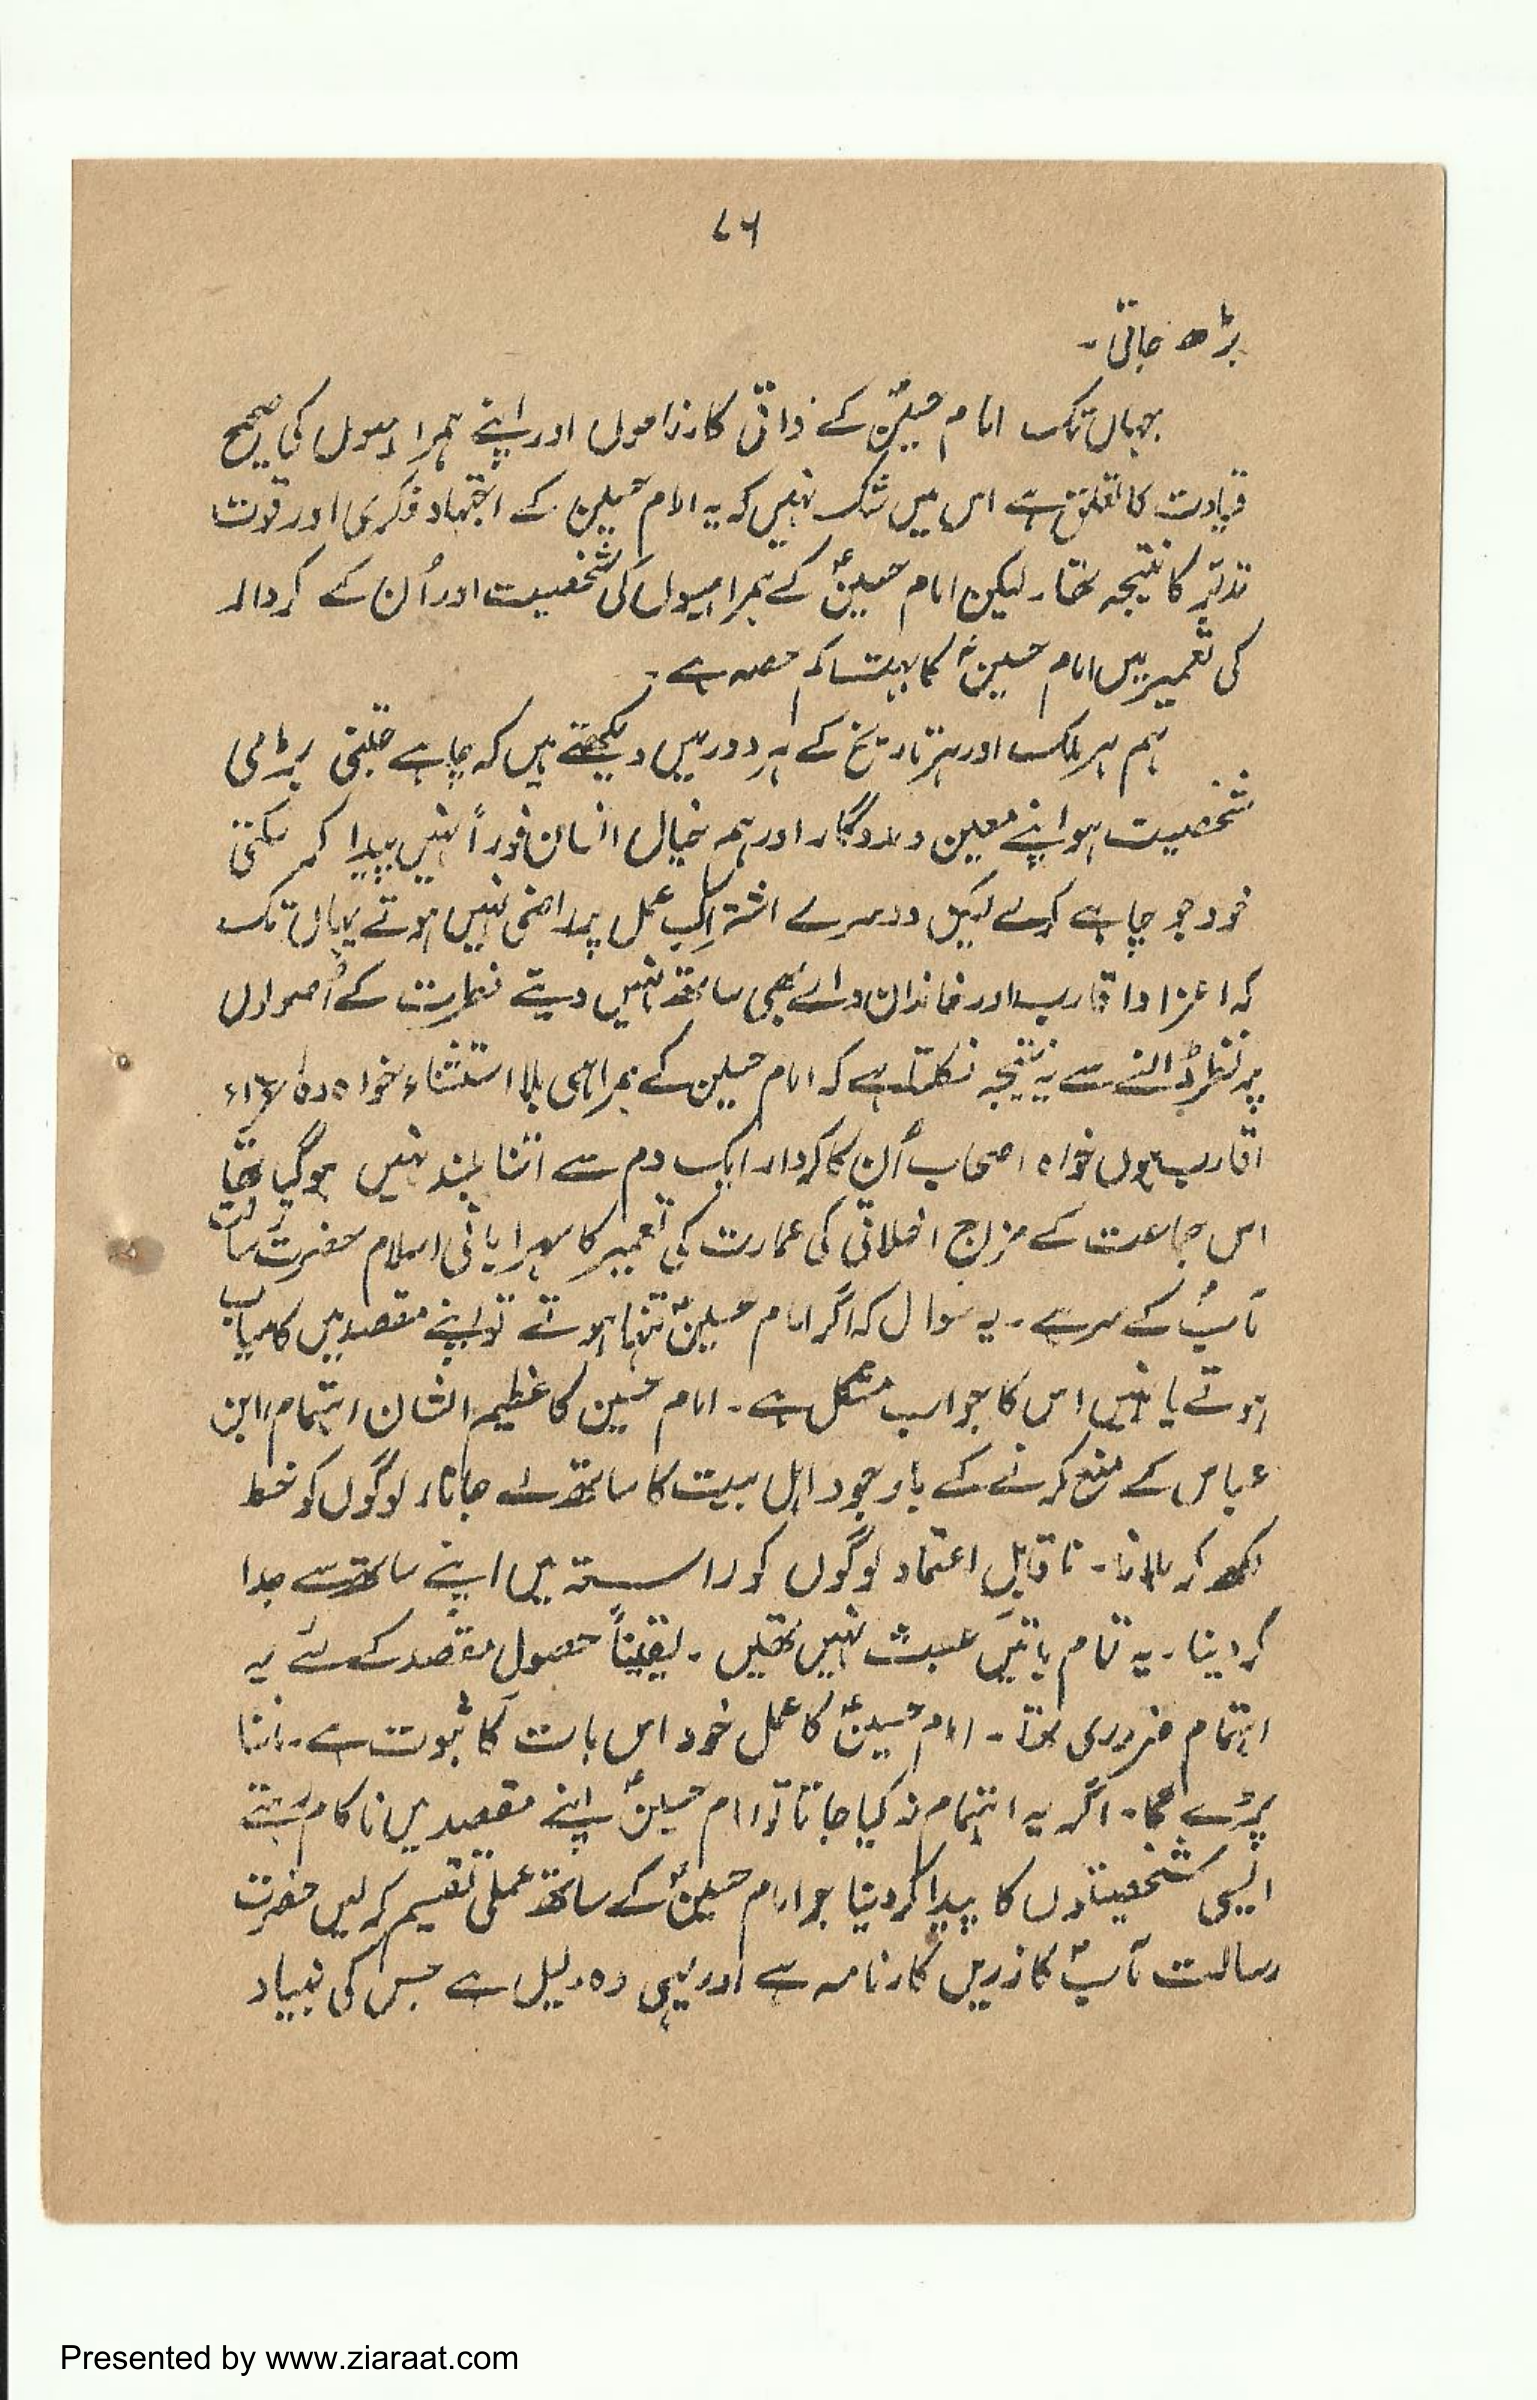 ۷۶
بڑھ جاتی۔
جہاں تک امام حسینؑ کے ذاتی کارناموں اور اپنے ہمراہیوں کی صحیح
قیادت کا تعلق ہے اس میں شک نہیں کہ یہ امام حسین کے اجتہاد فکری اور قوت
تدبّر کا نتیجہ تھا۔ لیکن امام حسینؑ کے ہمراہیوں کی شخصیت اور اُن کے کردار
کی تعمیر میں امام حسینؑ کا بہت کم حصہ ہے۔
ہم ہر ملک اور ہر تاریخ کے ہر دور میں دیکھتے ہیں کہ چاہے جتنی بڑی
شخصیت ہو اپنے معین و مددگار اور ہم خیال انسان فوراً نہیں پیدا کر سکتی
خود جو چاہے کرلے لیکن دوسرے اشتراکِ عمل پر راضی نہیں ہوتے یہاں تک
کہ اعزا و اقارب اور خاندان والے بھی ساتھ نہیں دیتے فطرت کے اُصولوں
پر نظر ڈالنے سے یہ نتیجہ نکلتا ہے کہ امام حسین کے ہمراہی بلا استثناء خواہ وہ اعزاء
اقارب ہوں خواہ اصحاب اُن کا کردار ایک دم سے اتنا بلند نہیں ہوگیا تھا
اس جماعت کے مزاج اخلاقی کی عمارت کی تعمیر کا سہرا بانی اسلام حضرت رسالت
مآبؐ کے سر ہے۔ یہ سوال کہ اگر امام حسینؑ تنہا ہوتے تو اپنے مقصد میں کامیاب
ہوتے یا نہیں اس کا جواب مشکل ہے۔ امام حسین کا عظیم الشان اہتمام، ابن
عباس کے منع کرنے کے باوجود اہل بیت کا ساتھ لے جانا، لوگوں کو خط
لکھ کر بلانا۔ ناقابلِ اعتماد لوگوں کو راستہ میں اپنے ساتھ سے جدا
کردینا۔ یہ تمام باتیں عبث نہیں تھیں۔ یقیناً حصول مقصد کے لئے یہ
اہتمام ضروری تھا۔ امام حسینؑ کا عمل خود اس بات کا ثبوت ہے۔ ماننا
پڑے گا۔ اگر یہ اہتمام نہ کیا جاتا تو امام حسینؑ اپنے مقصد میں ناکام رہتے
ایسی شخصیتوں کا پیدا کردینا جو امام حسینؑ کے ساتھ عملی تقسیم کرلیں حضرت
رسالت مآبؐ کا زریں کارنامہ ہے اور یہی وہ دلیل ہے جس کی بنیاد
Presented by www.ziaraat.com